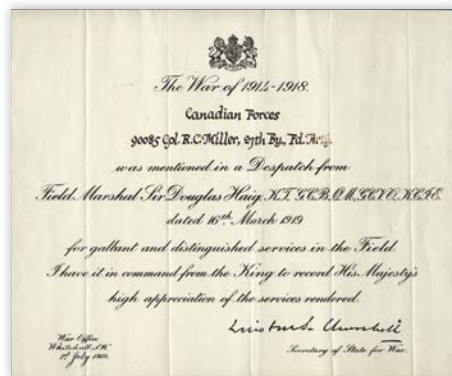 The War of 1914-1918.
Canadian Forces
90085 R.C. Miller, By., Fd.
was mentioned in a Despatch from
Field Marshal Sir Douglas Haig, K.T. G.C.B. O.M. G.C.V.O. K.C.I.E.
dated 16th March 1919
for gallant and distinguished services in the Field.
I have it in command from the King to record His Majesty's
high appreciation of the services rendered.
Winston S. Churchill
War Office
Whitehall, S.W.
Secretary of State for War.
1st July 1919.